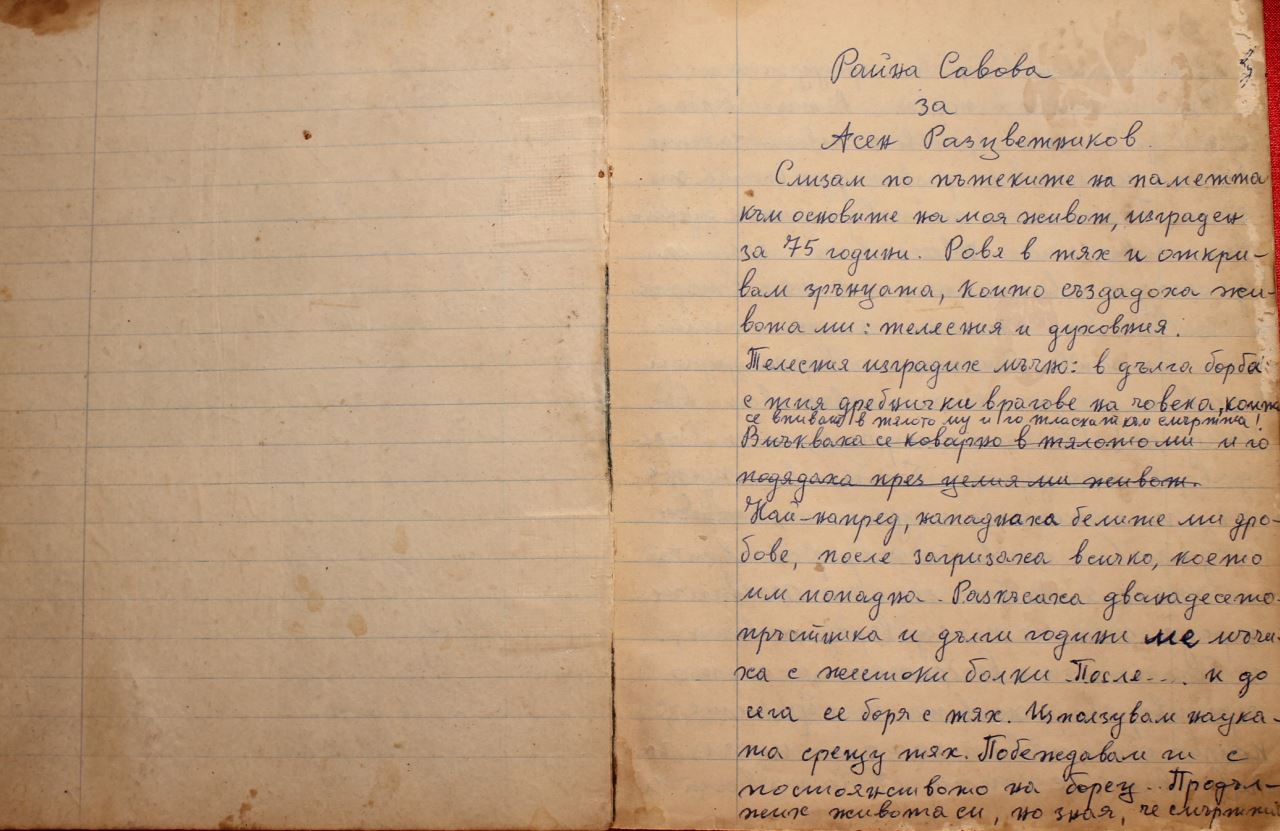 Райна Савова
за
Асен Разцветников.
Слизам по пътеките на паметта
към основите на моя живот, изграден
за 75 години. Ровя в тях и откри-
вам зрънцата, които създадоха жи-
вота ми: телесния и духовния.
Телесния изградих мъчно: в дълга борба
с тия дребнички врагове на човека, които
се впиват в тялото му и го тласкат към смъртта!
Вмъкваха се коварно в тялото ми и го
подядаха през целия ми живот.
Най-напред, нападнаха белите ми дро-
бове, после загризаха всичко, което
им попадна. Разкъсаха дванадесето-
пръстника и дълги години ме мъчи-
ха с жестоки болки. После.... и до
сега се боря с тях. Използувам наука-
та срещу тях. Побеждавам ги с
постоянството на борец.. Продъл-
жих живота си, но зная, че смъртта